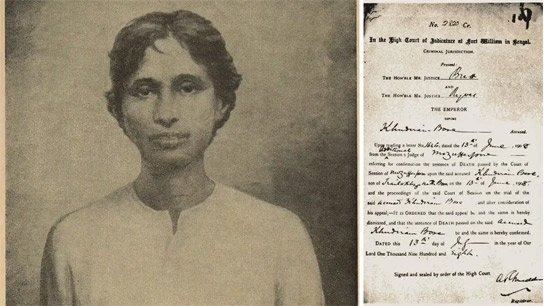 No. 2820 Cr.
In the High Court of Judicature at Fort William in Bengal.
CRIMINAL JURISDICTION.
Present:
THE HON'BLE MR. JUSTICE Brett
AND
THE HON'BLE MR. JUSTICE Ryves
THE EMPEROR
versus
Khudiram Bose Accused.
Upon reading a letter No. dated the 13th of June 1908
from the Additional Sessions Judge of Mozufferpore
referring for confirmation the sentence of DEATH passed by the Court of
Session of Mozufferpore upon the said accused Khudiram Bose,
son of on the 13th of June 1908
and the proceedings of the said Court of Session on the trial of the
said accused Khudiram Bose and after consideration of
his appeal;—IT IS ORDERED that the said appeal be and the same is hereby
dismissed, and that the sentence of DEATH passed on the said accused
Khudiram Bose be and the same is hereby confirmed.
DATED this 13th day of July in the year of Our
Lord One Thousand Nine Hundred and eight.
Signed and sealed by order of the High Court.
Registrar.